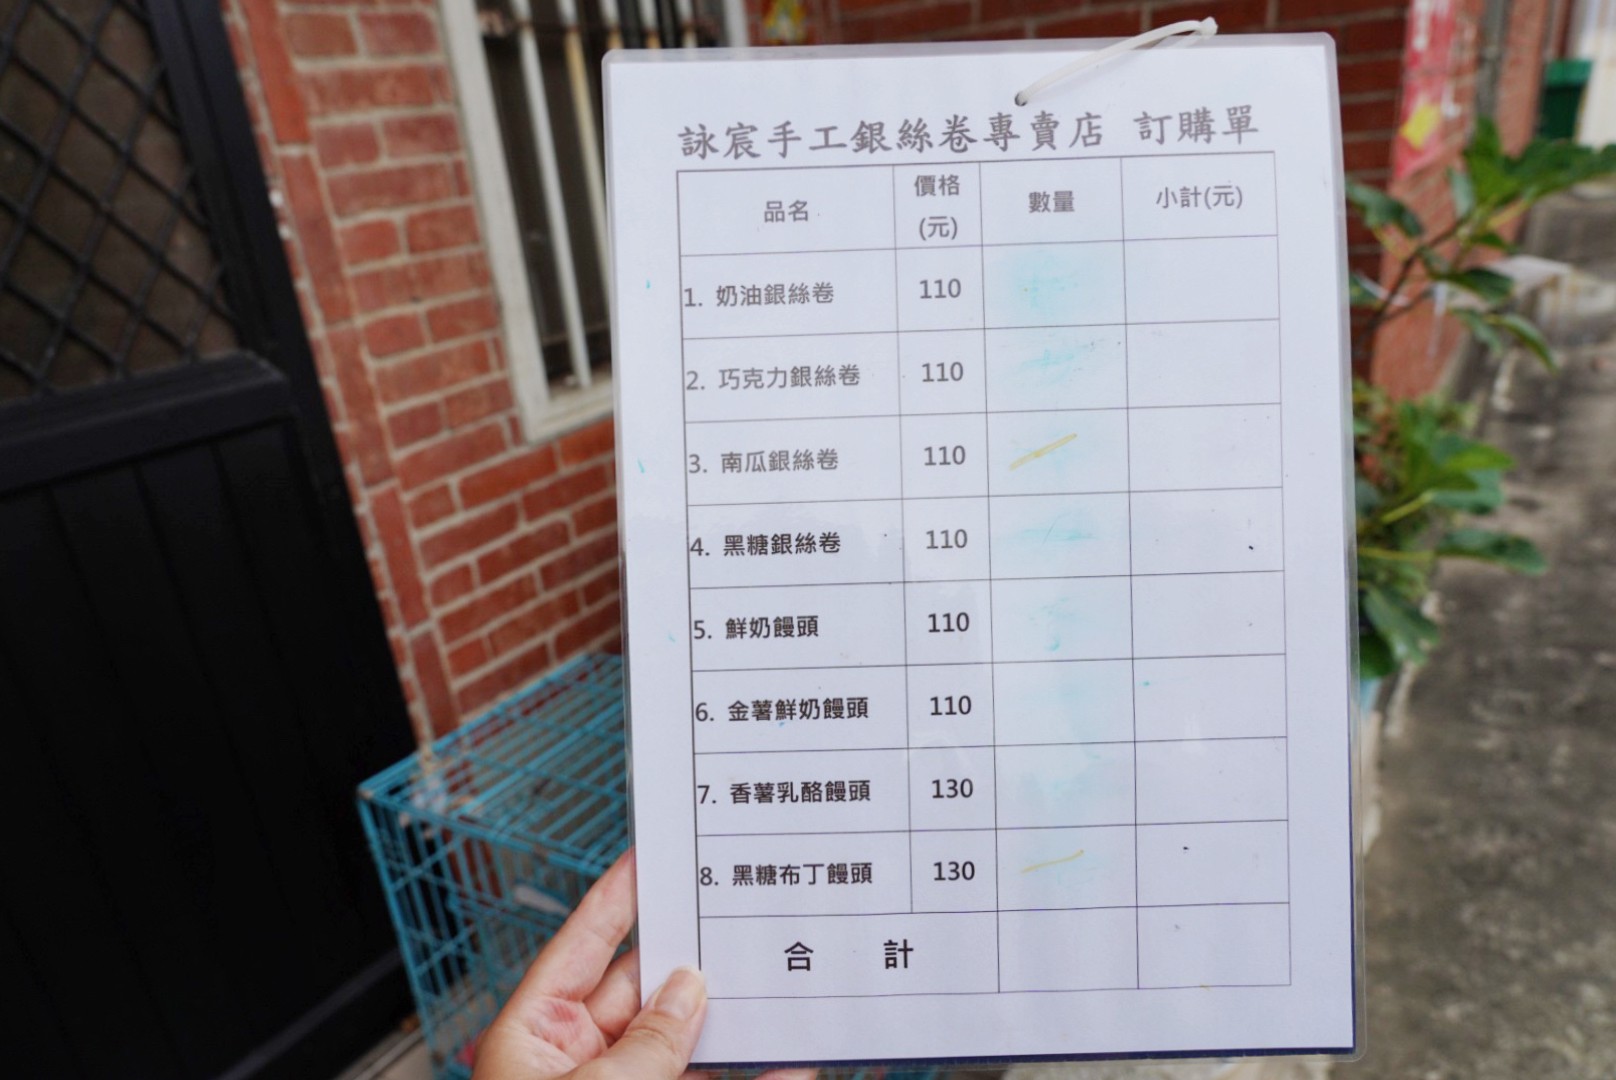 詠宸手工銀絲卷專賣店 訂購單
品名 價格(元) 數量 小計(元)
1. 奶油銀絲卷 110
2. 巧克力銀絲卷 110
3. 南瓜銀絲卷 110
4. 黑糖銀絲卷 110
5. 鮮奶饅頭 110
6. 金薯鮮奶饅頭 110
7. 香薯乳酪饅頭 130
8. 黑糖布丁饅頭 130
合 計